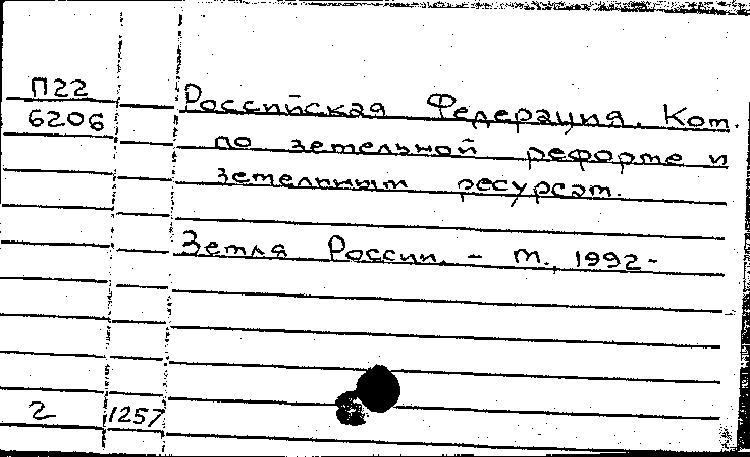 П22
6206
Российская Федерация. Ком.
по земельной реформе и
земельным ресурсам.
Земля России. - М., 1992-
2 1257